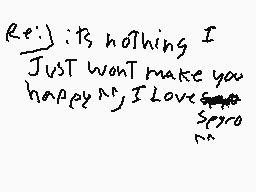 Re:) its nothing I
Just wont make you
happy ^^, I Love
Spyro
^^